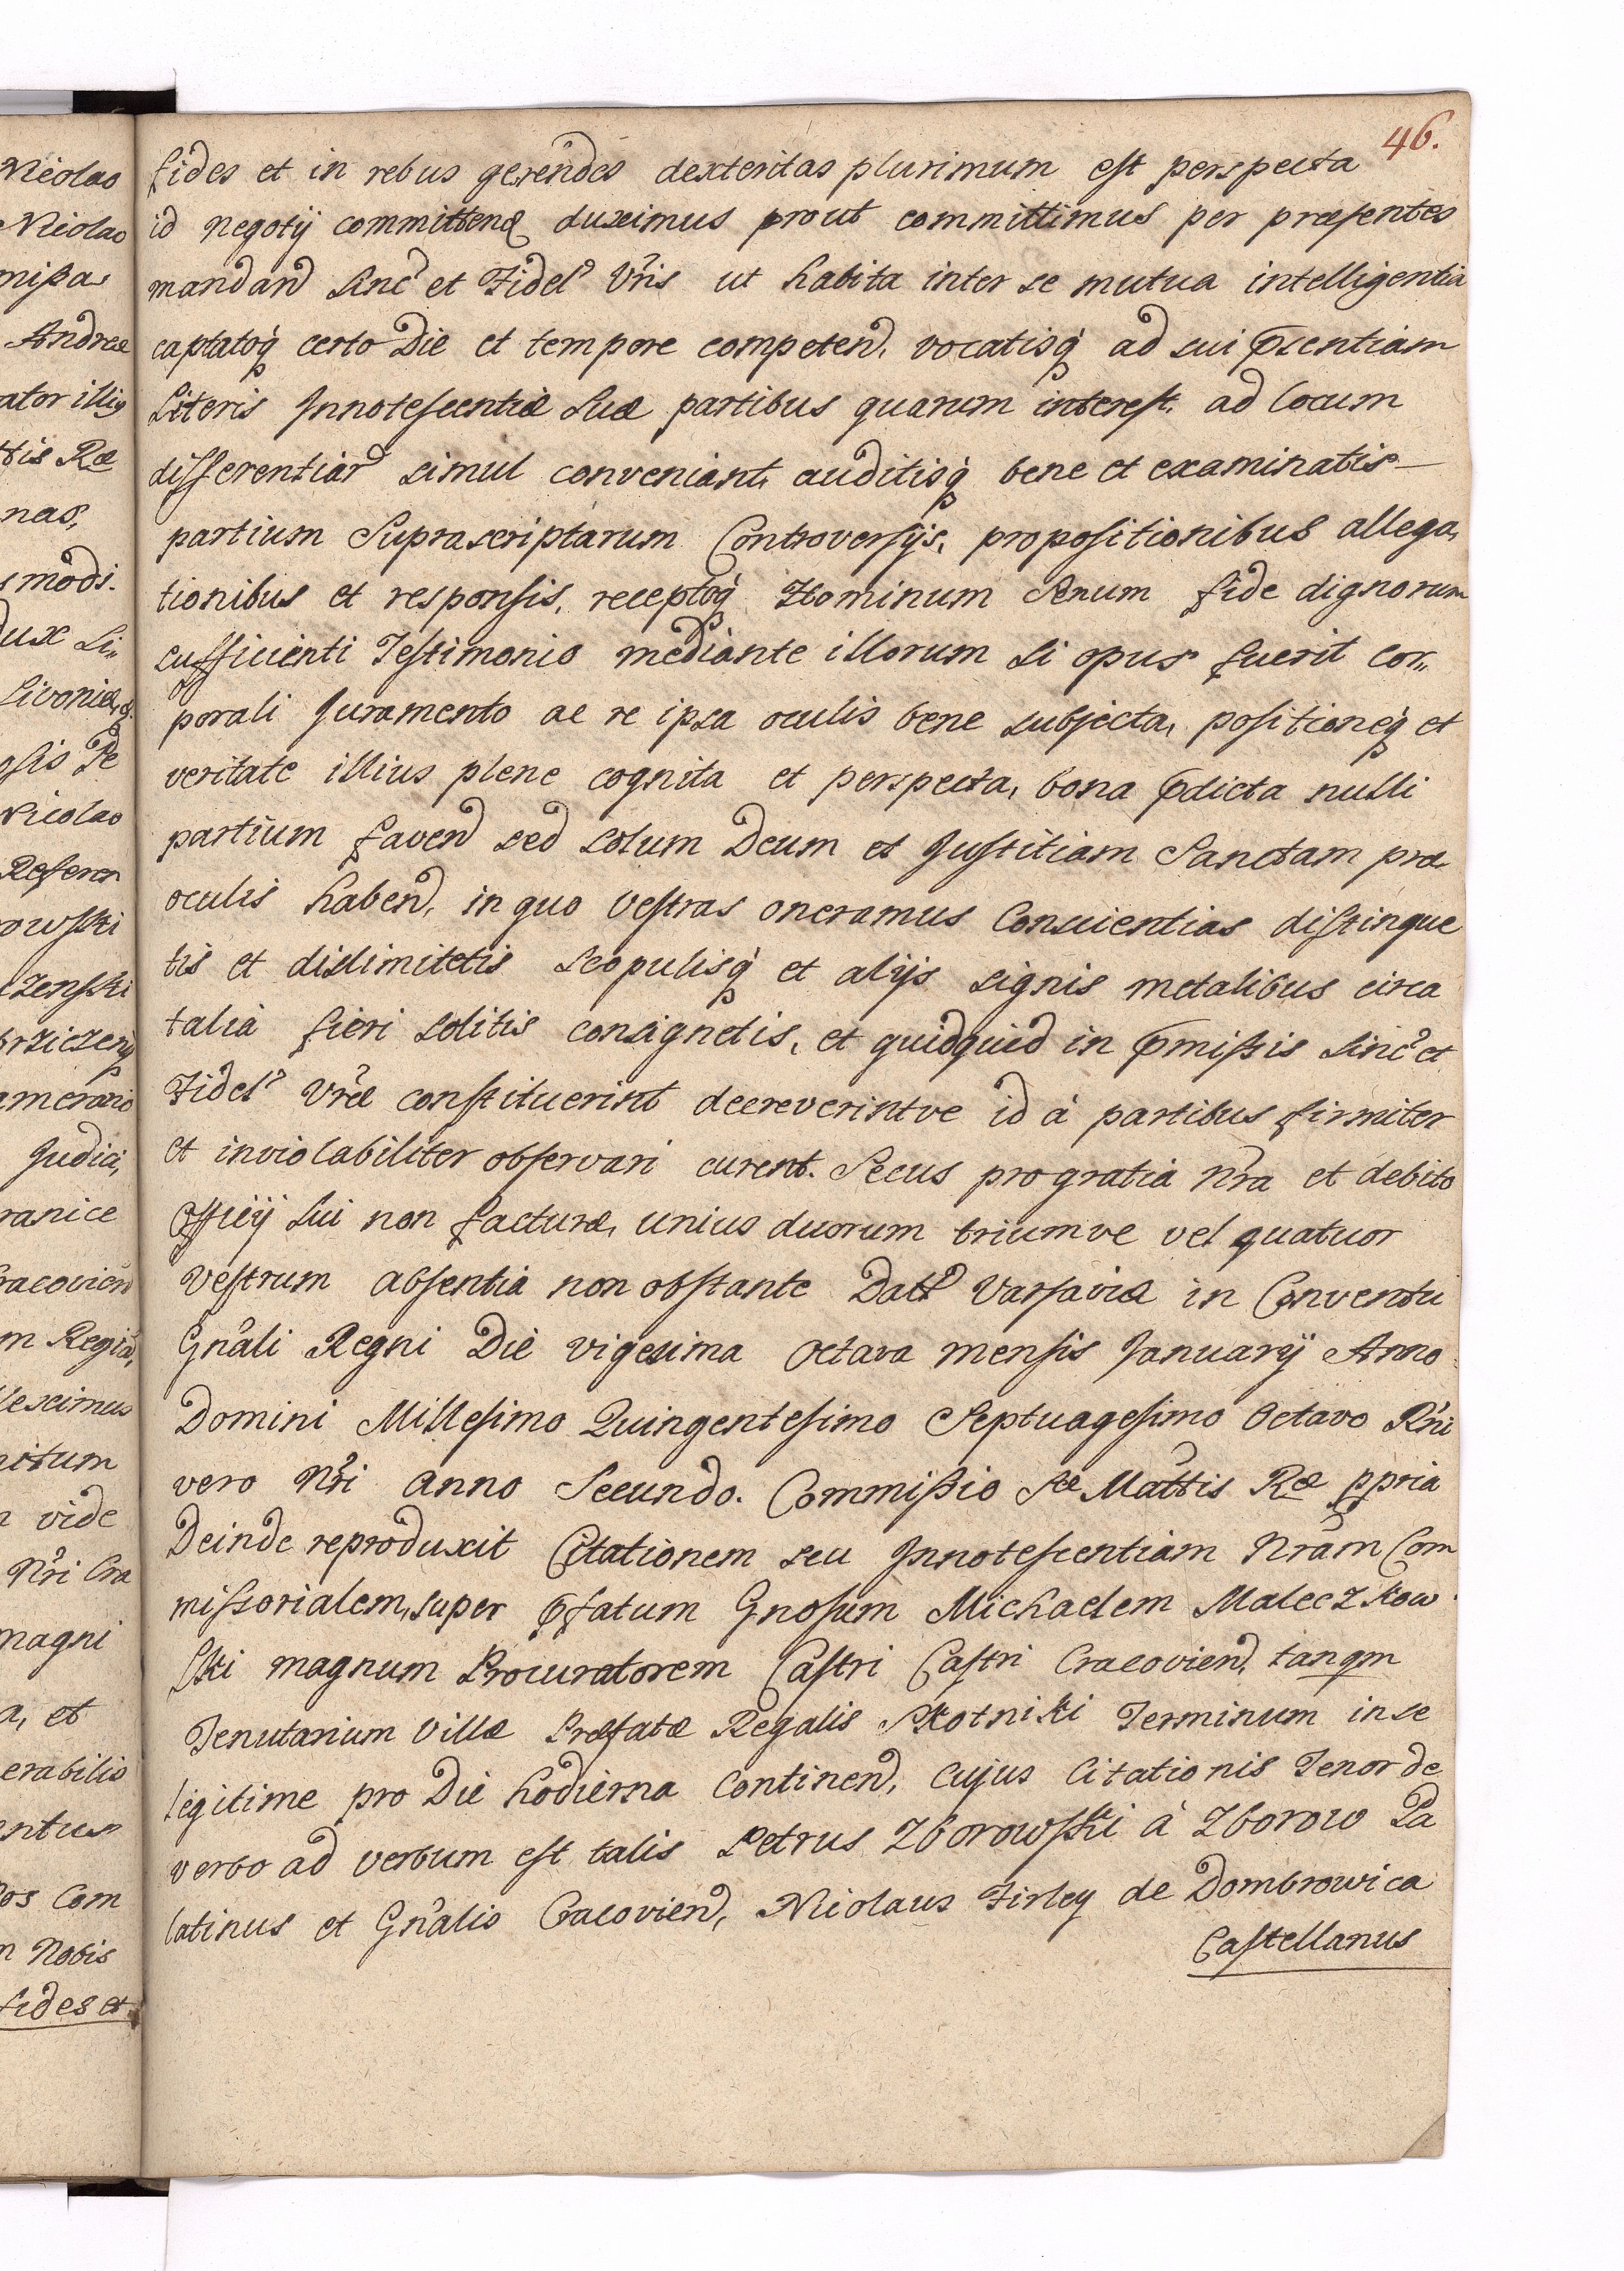 46.
fides et in rebus gerendes dexteritas plurimum est perspecta
id negotij committend duximus prout committimus per præsentes
mandand Sinc et Fidel Vris ut habita inter se mutua intelligentia
captatoq certo Die et tempore competend, vocatisq ad sui pntiam
Literis Innotescentiæ Suæ partibus quarum interest, ad locum
differentiar simul conveniant, auditisq bene et examinatis
partium Suprascriptarum Controversijs, propositionibus allega,
tionibus et responsis, receptoq Hominum Senum fide dignorum
sufficienti Testimonio mediante illorum si opus fuerit cor„
porali Juramento ac re ipsa oculis bene subjecta, positioneq et
veritate illius plene cognita et perspecta, bona pdicta nulli
partium favend sed solum Deum et Justitiam Sanctam præ
oculis habend, in quo vestras oneramus Conscientias distingue
tis et dislimitetis scopulisq et alijs signis metalibus circa
talia fieri solitis consignetis, et quidquid in pmissis Sinc et
Fidel Vræ constituerint decreverintve id à partibus firmiter
et inviolabiliter observari curent. Secus pro gratia nra et debito
Officij sui non facturæ, unius duorum triumve vel quatuor
Vestrum absentia non obstante Datt Varsaviæ in Conventu
Gnali Regni Die vigesima octava mensis January Anno
Domini Millesimo Quingentesimo Septuagesimo Octavo Rni
vero Nri anno Secundo. Commissio Sæ Mattis Ræ ppria
Deinde reproduxit Citationem seu Innotescentiam Nram Com
missorialem, super pfatum Gnosum Michaelem Maleczkow
ski magnum Procuratorem Castri Castri Cracovien, tanqm
Tenutarium Villæ Præfatæ Regalis Skotniki Terminum in se
legitime pro Die hodierna Continend, Cujus Citationis Tenor de
verbo ad verbum est talis Petrus Zborowski à Zborow Pa
latinus et Gnalis Cracovien, Nicolaus Firley de Dombrowica
Castellanus